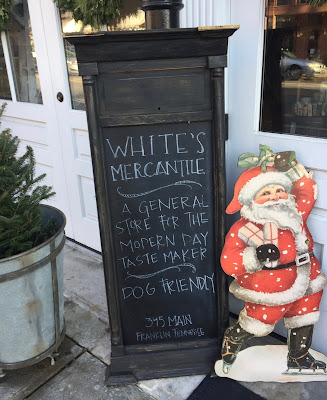 WHITE'S
MERCANTILE
WHITE'S
MERCANTILE
A GENERAL
STORE FOR THE
MODERN DAY
TASTE MAKER
DOG FRIENDLY
345 MAIN
FRANKLIN TENNESSEE